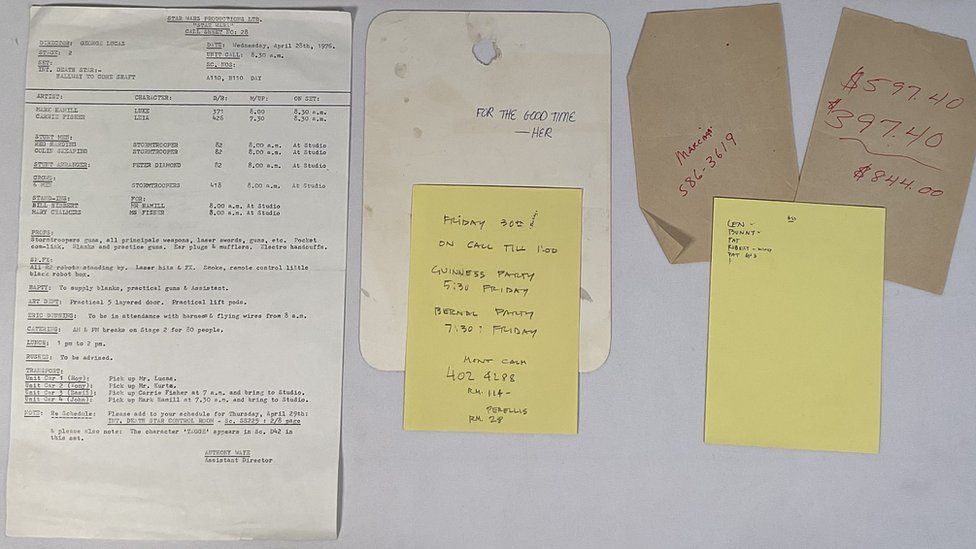 STAR WARS PRODUCTIONS LTD.
"STAR WARS"
CALL SHEET NO: 28
DIRECTOR: GEORGE LUCAS
DATE: Wednesday, April 28th, 1976.
STAGE: 2
UNIT CALL: 8.30 a.m.
SET:
SC. NOS:
INT. DEATH STAR:-
HALLWAY TO CORE SHAFT
A110, B110 DAY
ARTIST: CHARACTER: D/R: M/UP: ON SET:
MARK HAMILL LUKE 371 8.00 8.30 a.m.
CARRIE FISHER LEIA 426 7.30 8.30 a.m.
STUNT MEN:
REG HARDING STORMTROOPER 82 8.00 a.m. At Studio
COLIN SKEAPING STORMTROOPER 82 8.00 a.m. At Studio
STUNT ARRANGER: PETER DIAMOND 82 8.00 a.m. At Studio
CROWD:
6 MEN STORMTROOPERS 418 8.00 a.m. At Studio
STAND-INS: FOR:
BILL MR HAMILL 8.00 a.m. At Studio
MARY CHALMERS MS FISHER 8.00 a.m. At Studio
PROPS:
Stormtroopers guns, all principals weapons, laser swords, guns, etc. Pocket
com-link. Blanks and practice guns. Ear plugs & mufflers. Electro handcuffs.
SP.FX:
All R2 robots standing by. Laser hits & FX. Smoke, remote control little
black robot box.
BAPTY: To supply blanks, practical guns & Assistant.
ART DEPT: Practical 5 layered door. Practical lift pods.
ERIC DUNNING: To be in attendance with harness & flying wires from 8 a.m.
CATERING: AM & PM breaks on Stage 2 for 80 people.
LUNCH: 1 pm to 2 pm.
RUSHES: To be advised.
TRANSPORT:
Unit Car 1 (Roy): Pick up Mr. Lucas.
Unit Car 2 (Tony): Pick up Mr. Kurtz.
Unit Car 3 (Basil): Pick up Carrie Fisher at 7 a.m. and bring to Studio.
Unit Car 4 (John): Pick up Mark Hamill at 7.30 a.m. and bring to Studio.
NOTE: Re Schedule: Please add to your schedule for Thursday, April 29th:
INT. DEATH STAR CONTROL ROOM - Sc. SS225 : 2/8 page
& please also note: The character 'TAGGE' appears in Sc. D42 in
this set.
ANTHONY WAYE
Assistant Director
FOR THE GOOD TIME
— HER
FRIDAY 30TH
ON CALL TILL 1:00
GUINNESS PARTY
5:30 FRIDAY
BERNAL PARTY
7:30: FRIDAY
MONT CALM
402 4288
RM. 114-
PERELLIS
RM. 28
586-3619
$597.40
$397.40
$844.00
LEN-
BUNNY-
PAT